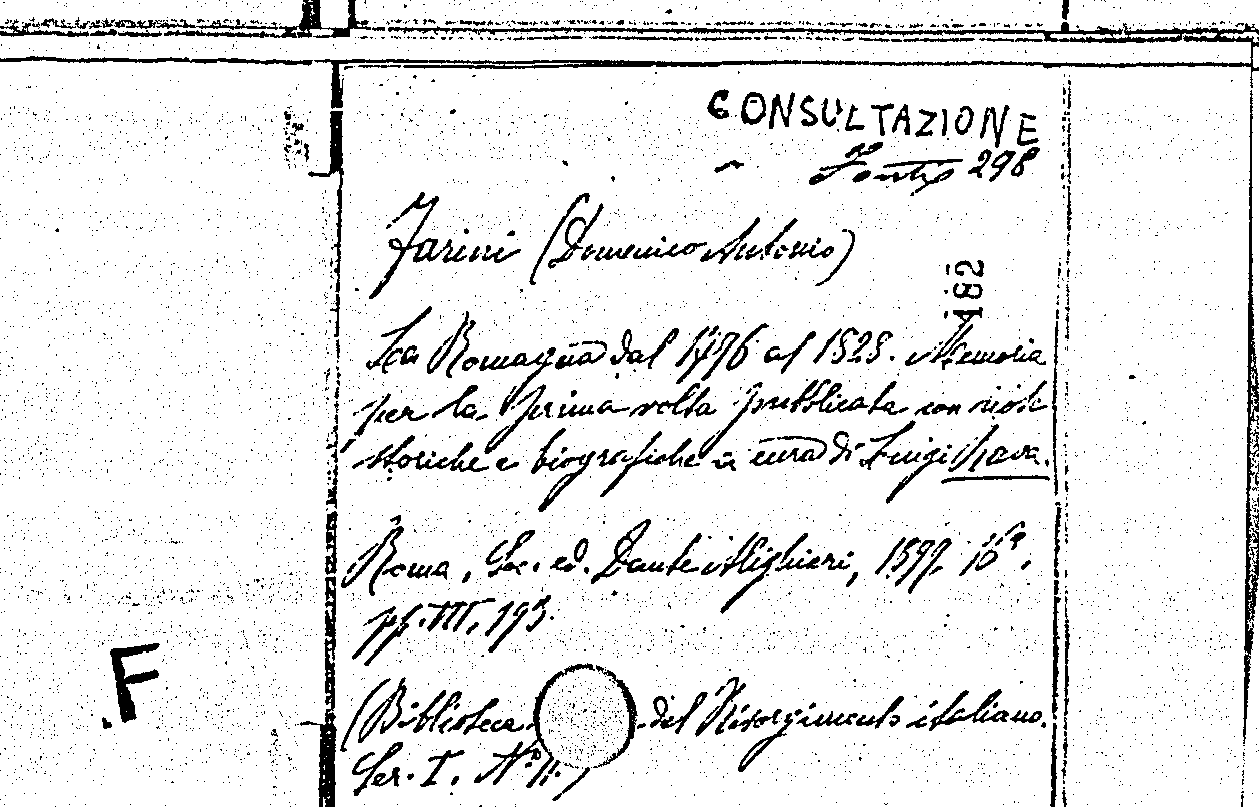 CONSULTAZIONE
Fonti 298
Farini (Domenico Antonio)
182
La Romagna dal 1796 al 1828. Memoria
per la prima volta pubblicata con note
storiche e biografiche a cura di Luigi Rava.
Roma, Soc. ed. Dante Alighieri, 1899 16º.
pp. VIII, 193.
F
(Biblioteca del Risorgimento italiano.
Ser. I. Nº 11.)